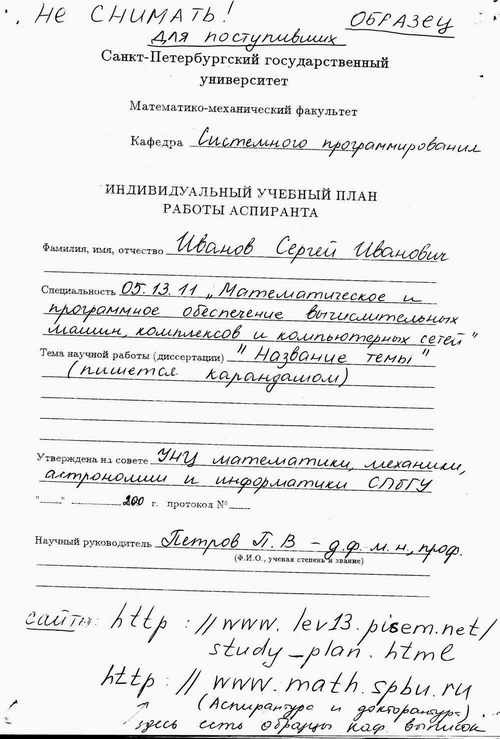 НЕ СНИМАТЬ!
ОБРАЗЕЦ
для поступивших
Санкт-Петербургский государственный
университет
Математико-механический факультет
Кафедра Системного программирования
ИНДИВИДУАЛЬНЫЙ УЧЕБНЫЙ ПЛАН
РАБОТЫ АСПИРАНТА
Фамилия, имя, отчество Иванов Сергей Иванович
Специальность 05.13.11 „Математическое и
программное обеспечение вычислительных
машин, комплексов и компьютерных сетей"
Тема научной работы (диссертации) "Название темы"
(пишется карандашом)
Утверждена на совете УНЦ математики, механики,
астрономии и информатики СПбГУ
"___" ________ 200 г. протокол №___
Научный руководитель Петров П. В – д.ф.м.н., проф.
(Ф.И.О., ученая степень и звание)
сайты: http://www.lev13.pisem.net/
study_plan.html
http://www.math.spbu.ru
(Аспирантура и докторантура)
здесь есть образцы каф. выписок